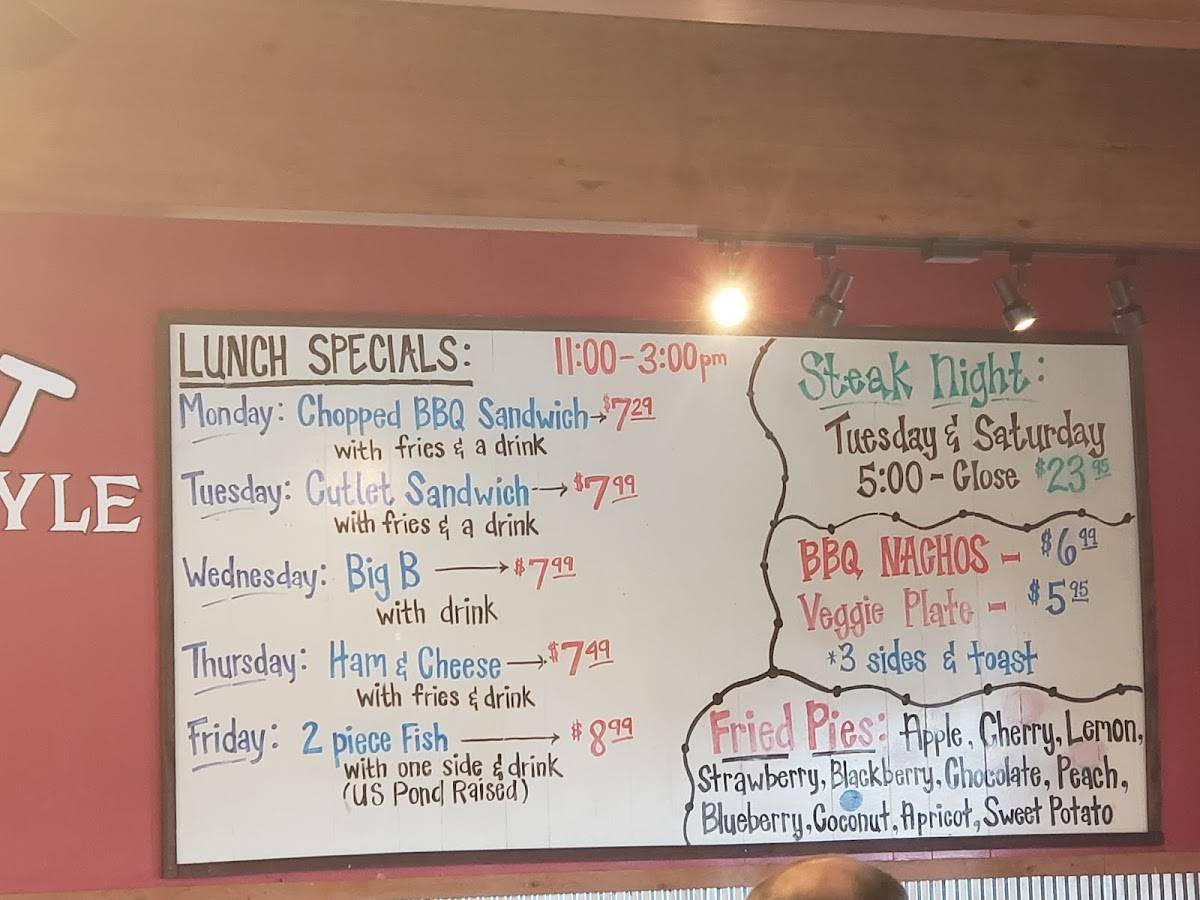 T
YLE
LUNCH SPECIALS: 11:00-3:00pm
Monday: Chopped BBQ Sandwich→$7.29
with fries & a drink
Tuesday: Cutlet Sandwich→$7.99
with fries & a drink
Wednesday: Big B→$7.99
with drink
Thursday: Ham & Cheese→$7.49
with fries & drink
Friday: 2 piece Fish→$8.99
with one side & drink
(US Pond Raised)
Steak Night:
Tuesday & Saturday
5:00-Close $23.95
BBQ NACHOS - $6.99
Veggie Plate - $5.95
*3 sides & toast
Fried Pies: Apple, Cherry, Lemon,
Strawberry, Blackberry, Chocolate, Peach,
Blueberry, Coconut, Apricot, Sweet Potato